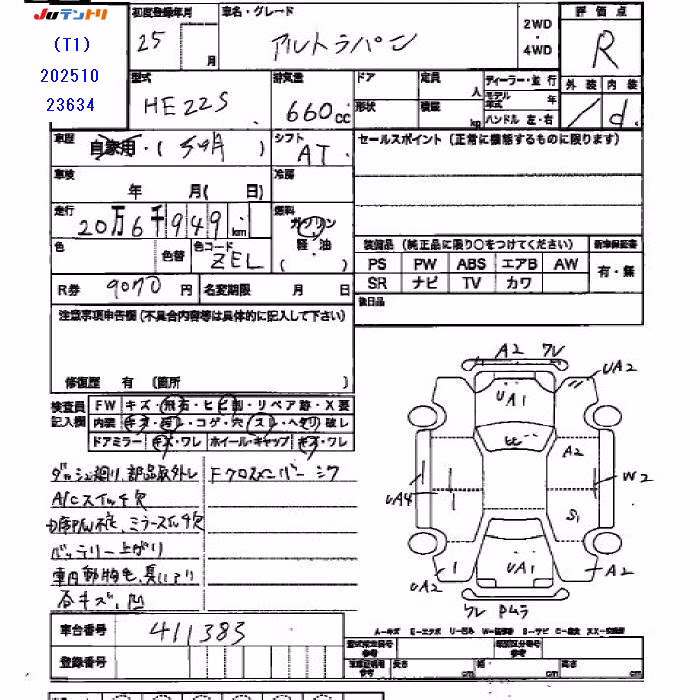 JUテントリ
(T1)
202510
23634
初度登録年月
25 月
車名・グレード
アルトラパン
2WD
・
4WD
評価点
R
型式
HE22S
排気量
660cc
ドア
形状
定員
人
積載
kg
ディーラー・並行
モデル年式 年
ハンドル 左・右
外装
内装
d
車歴
自家用・( )
シフト
AT
セールスポイント(正常に機能するものに限ります)
車検
年 月( 日)
冷房
走行
20万6千949km
燃料
ガソリン
軽・油
( )
色
色替
色コード
ZEL
装備品(純正品に限り○をつけてください)
新車保証書
PS PW ABS エアB AW
SR ナビ TV カワ
有・無
R券 9070円
名変期限 月 日
後日品
注意事項申告欄(不具合内容等は具体的に記入して下さい)
修復歴 有 (箇所 )
検査員記入欄
FW キズ・飛石・ヒビ割・リペア跡・X要
内装 キズ・汚レ・コゲ・穴・スレ・ヘタリ・破レ
ドアミラー キズ・ワレ ホイール・キャップ キズ・ワレ
ダッシュ廻り、部品取外し
Fクロスメンバーシワ
A/Cスイッチ欠
ミラースイッチ欠
バッテリー上がり
各キズ、凹
A2 ワレ
UA2
UA1
ヒビ
A2
W2
UA4
S1
UA1
UA2
A2
ワレ Pムラ
車台番号 411383
登録番号
A-キズ E-エクボ U-凹み W-補修跡 S-サビ C-腐食 XX-交換済
長さ cm 幅 cm 高さ cm